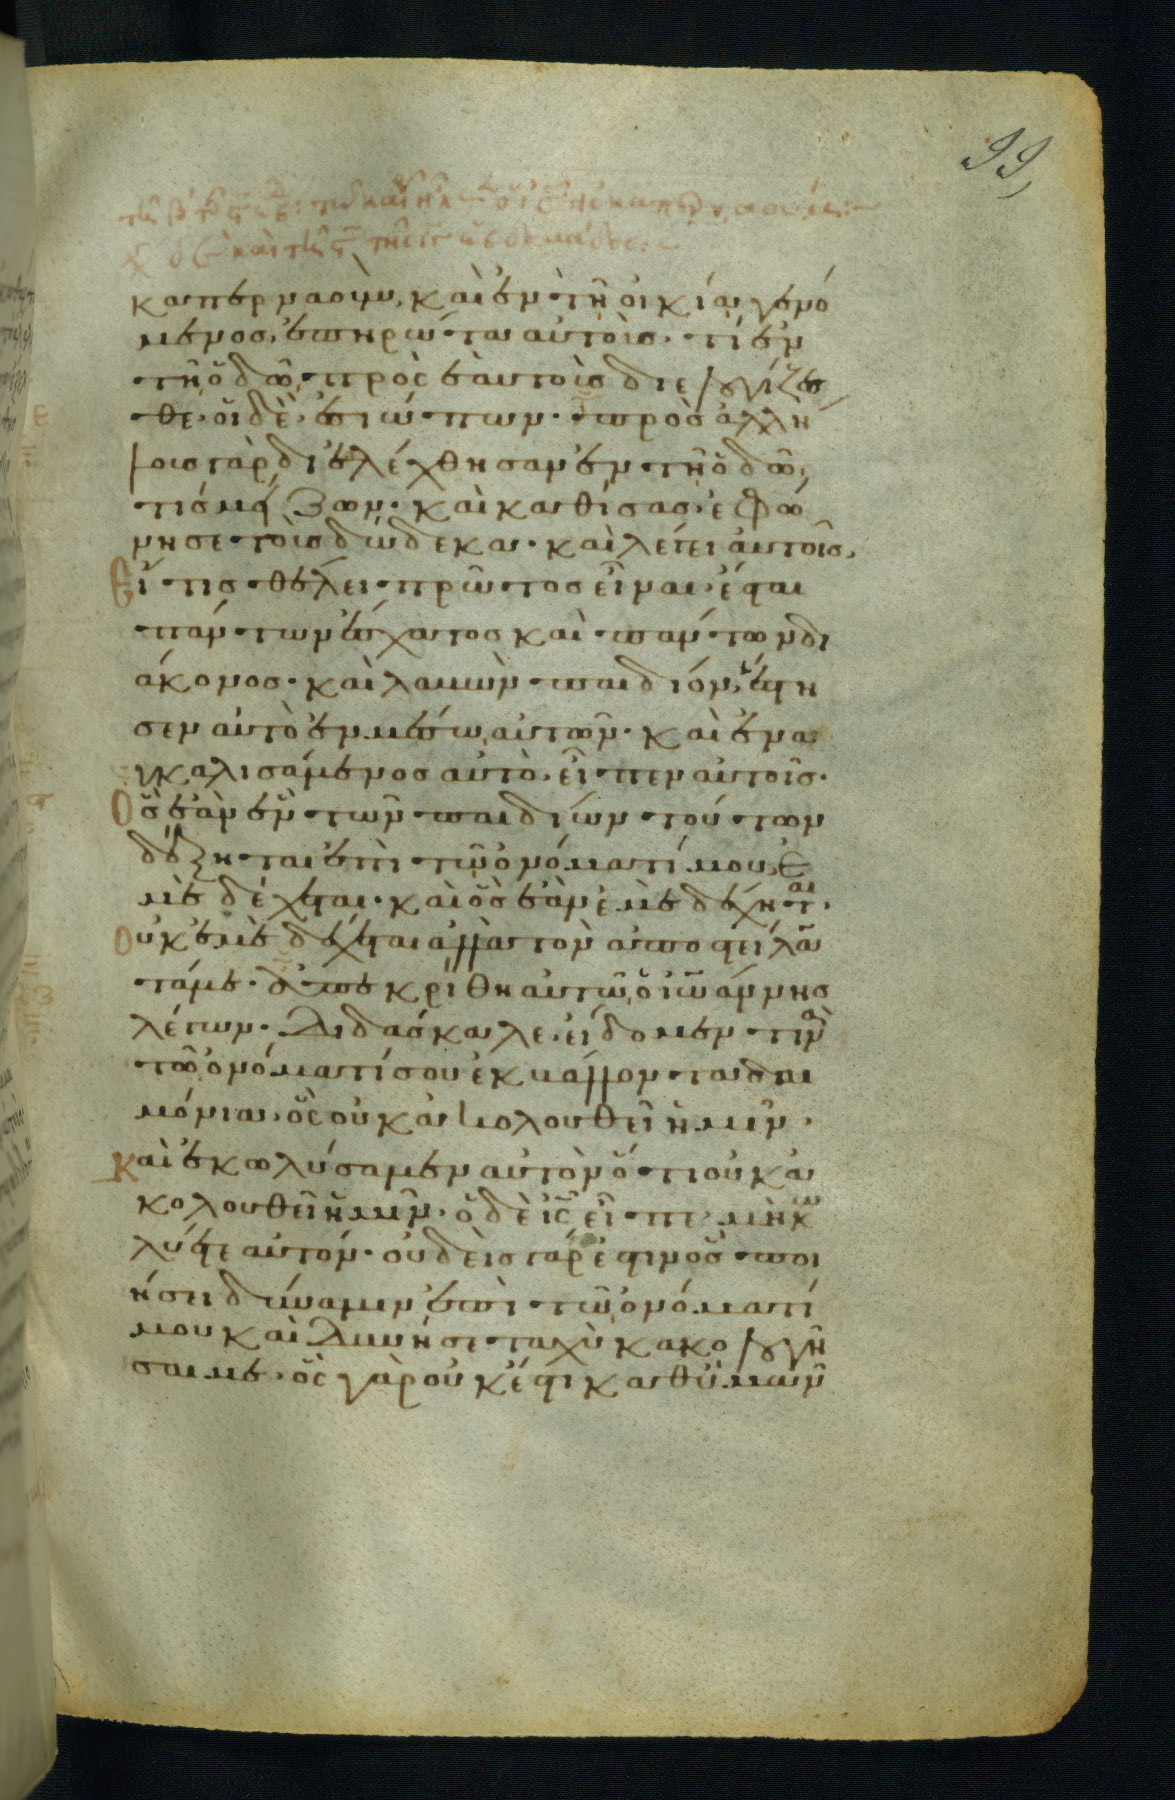 99
καπερναούμ, καὶ ἐν τῆ οἰκία γενό
μενος, ἐπηρώτα αὐτοὺς. τί ἐν
τῆ ὁδῶ πρὸς ἑαυτοὺς διελογίζε
σθέ. οἱ δὲ ἐσιώπων. πρὸς ἀλλή
λους γὰρ διελέχθησαν ἐν τῆ ὁδῶ,
τίς μείζων. καὶ καθίσας ἐφώ
νησε τοὺς δώδεκα. καὶ λέγει αὐτοῖς,
Εἴ τις θέλει πρῶτος εἶναι, ἔσται
πάντων ἔσχατος καὶ πάντων δι
άκονος. καὶ λαβὼν παιδίον, ἔστη
σεν αὐτὸ ἐν μέσω αὐτῶν. καὶ ἐνα
γκαλισάμενος αὐτὸ, εἶπεν αὐτοῖς.
Ὃς ἐὰν ἓν τῶν παιδίων τούτων
δέξηται ἐπὶ τῶ ὀνόματί μου, ἐ
μὲ δέχεται. καὶ ὃς ἐὰν ἐμὲ δέχηται.
Οὐκ ἐμὲ δέχεται ἀλλὰ τὸν ἀποστείλαν
τά με. ἀπεκρίθη αὐτῶ ὁ ἰωάννης
λέγων. Διδάσκαλε, εἴδομεν τινὰ
τῶ ὀνόματί σου ἐκβάλλοντα δαι
μόνια, ὃς οὐκ ἀκολουθεῖ ἡμῖν.
Καὶ ἐκωλύσαμεν αὐτὸν ὅτι οὐκ ἀ
κολουθεῖ ἡμῖν. ὁ δὲ ις εἶπε, μὴ κω
λύετε αὐτόν. οὐδεὶς γάρ ἐστιν ὃς ποι
ήσει δύναμιν ἐπὶ τῶ ὀνόματί
μου καὶ δυνήσεται ταχὺ κακολογῆ
σαι με. ὃς γὰρ οὐκ ἔστι καθ' ὑμῶν